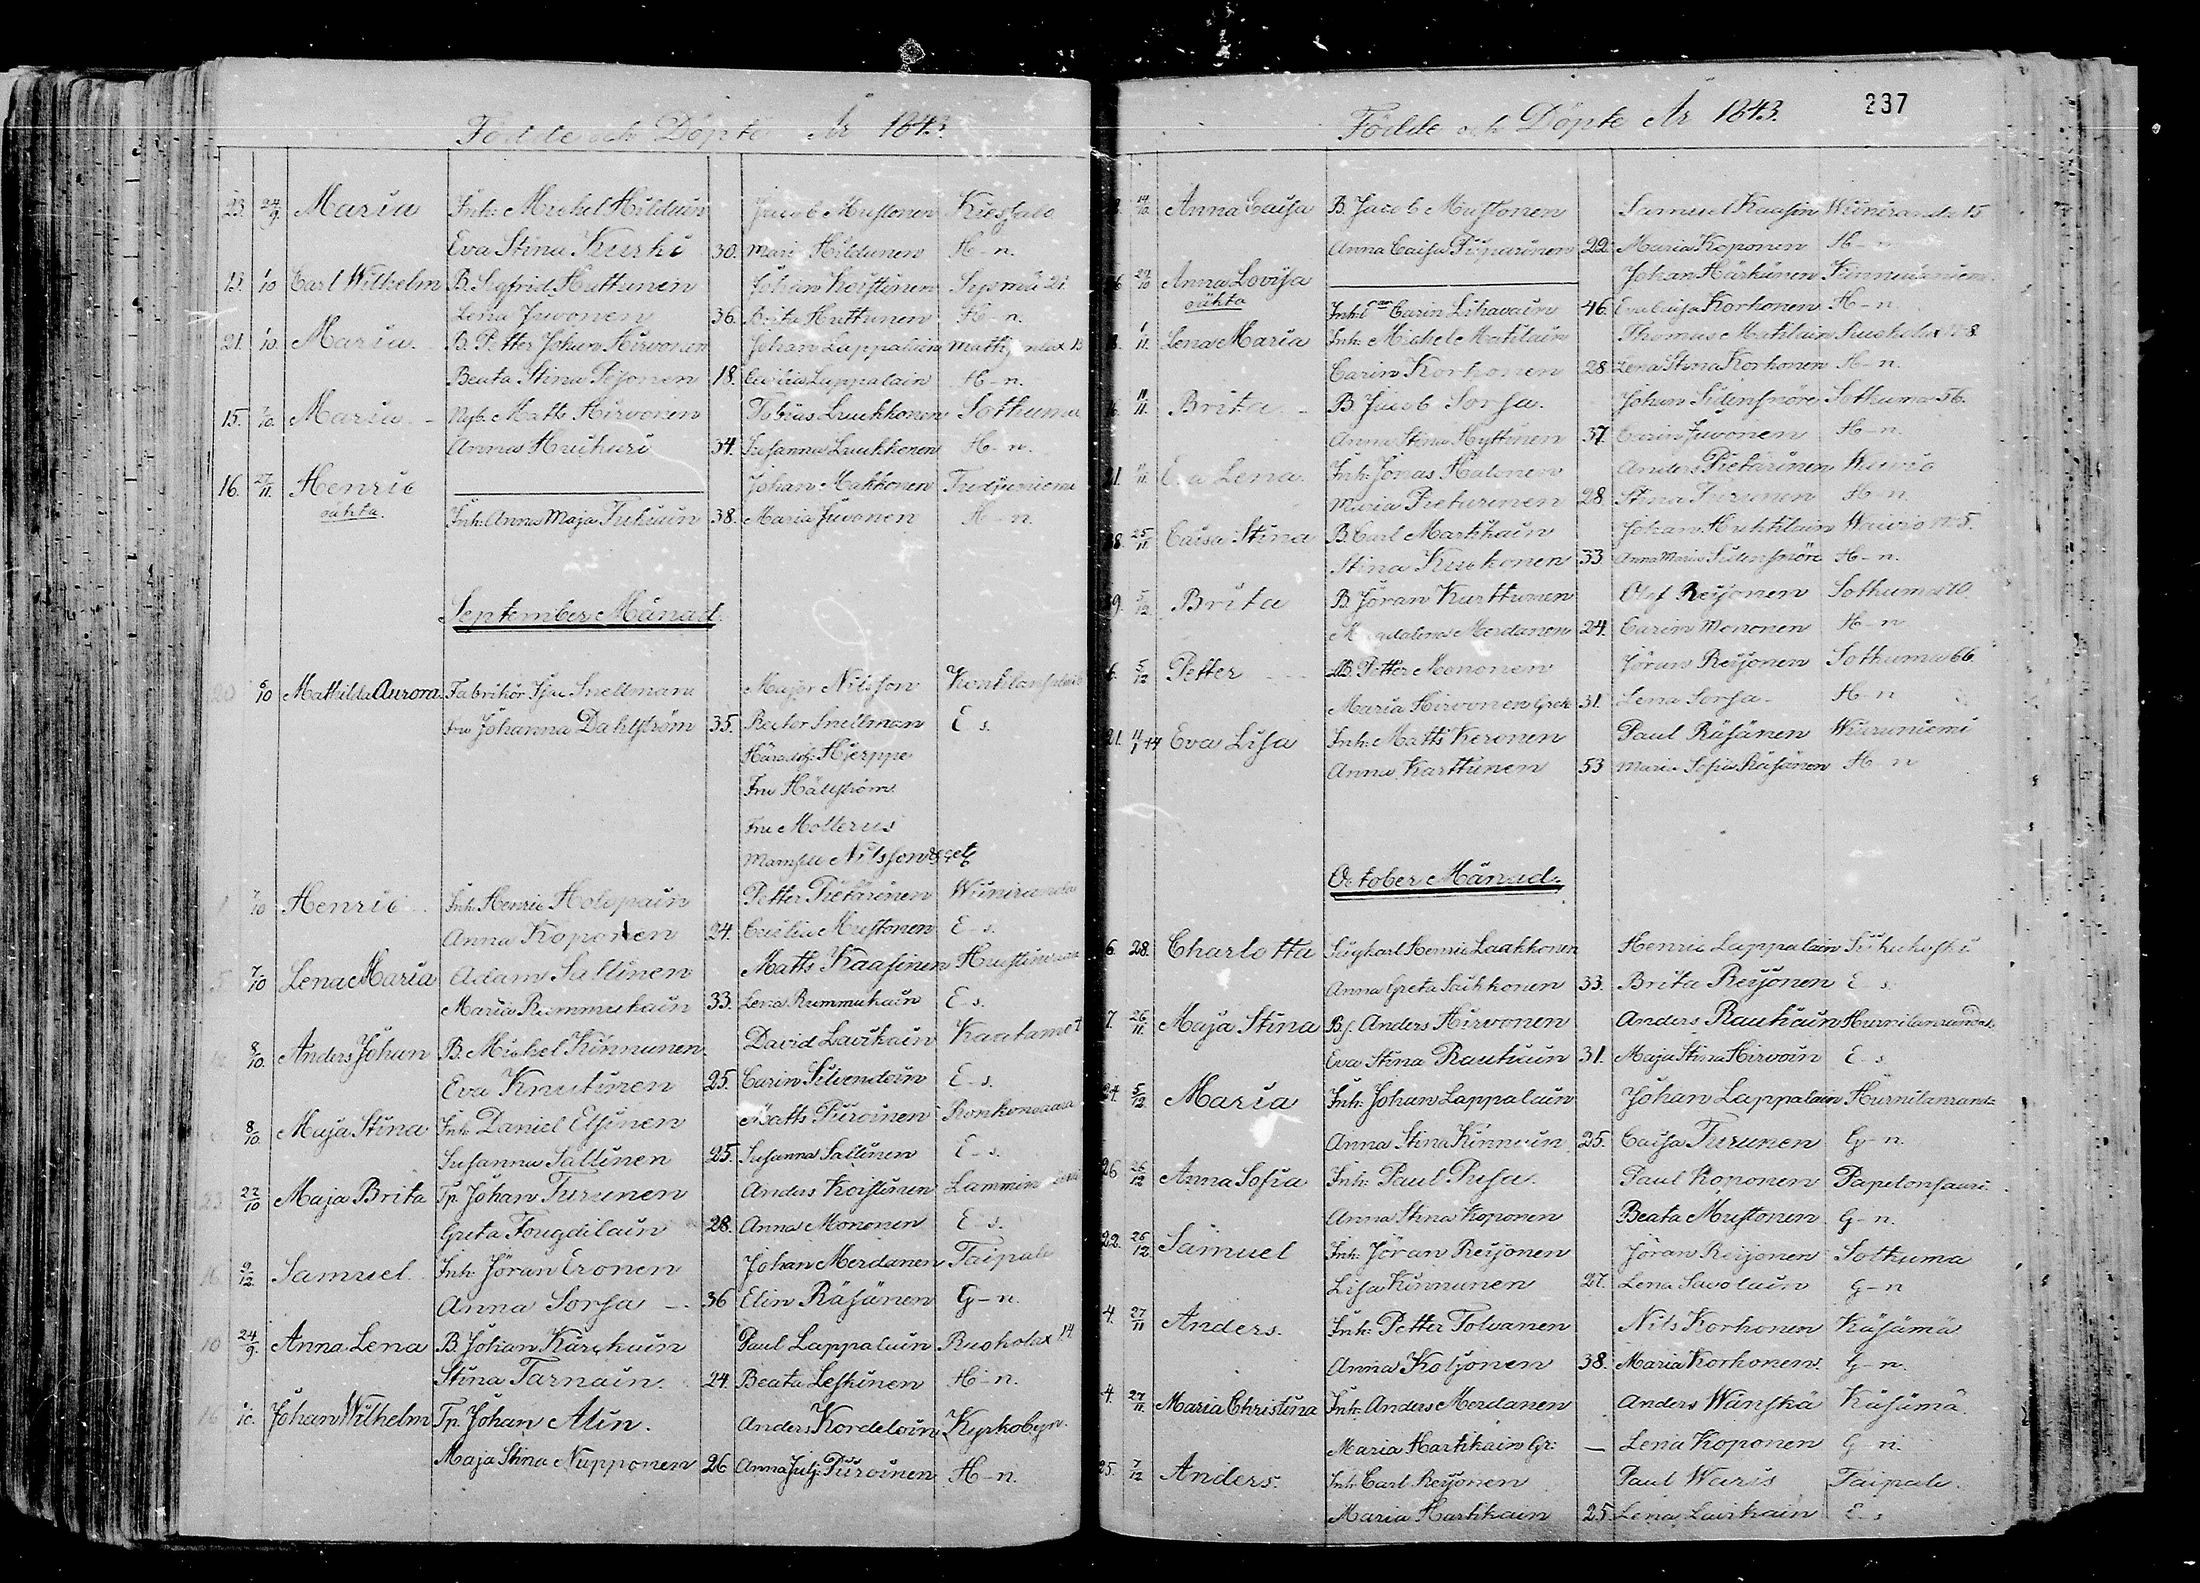 Födde och Döpte År 1843.
23. 24/9 Maria Inh: Michel Hilduin Jacob Mustonen Kiessalo
Eva Stina Kurki 30. Mari Hildunen H-n.
13. 1/10 Carl Wilhelm B. Sigfrid Huttunen Johan Koistinen Sysmä 21
Lena Juvonen 36. Brita Huttunen H-n.
21. 1/10. Maria B. Petter Johan Hirvonen Johan Lappalain Mattisenlax 13
Beata Stina Reijonen 18. Cecilia Lappalain H-n.
15. 1/10. Maria Nyb. Matts Hirvonen Tobias Luukkonen Sotkuma
Anna Huikuri 34. Susanna Luukkonen H-n.
16. 27/11. Henric Johan Makkonen
oäkta. Inh. Anna Maja Tukiain 38. Maria Juvonen H-n.
September Månad.
20 6/10 Mathilda Aurora Fabrikör Snellman Major Nilsson
Fru Johanna Dahlström 35. Rector Snellman E-s.
Häradsh: Hjerppe
Fru Hällström
Fru Mollerus
Mamsell Nilsson
/10 Henric Inh. Henric Holopain Petter Pietarinen Wiiniranda
Anna Koponen 24. Cecilia Mustonen E-s.
7/10 Lena Maria Adam Sallinen Matts Kaasinen
Maria Rummukain 33. Lena Rummukain E-s.
8/10. Anders Johan B. Michel Kinnunen David Lavikain Kaatamot
Eva Knuutinen 25. Carin Silvendoin E-s.
8/10. Maja Stina Inh. Daniel Elsinen Matts Piiroinen Ronkonvaara
Susanna Sallinen 25. Susanna Sallinen E-s.
23 22/10 Maja Brita Tp. Johan Turunen Anders Koistinen
Greta Fougdilain 28. Anna Mononen E-s.
16 9/12. Samuel Inh. Jöran Eronen Johan Merdanen Taipale
Anna Sorsa 36 Elin Räsänen G-n.
10 24/9. Anna Lena B. Johan Kärkkäin Paul Lappalain Ruokolax 14
Stina Tarnain. 24. Beata Leskinen H-n.
16 /10. Johan Wilhelm Tp. Johan Alin. Anders Kordeloin Kyrkobyn.
Maja Stina Nupponen 26 Anna Julj. Piiroinen H-n.
Födde och Döpte År 1843. 237
14/10 Anna Caisa B. Jacob Mustonen Samuel Kaasin Wiiniranda 15
Anna Caisa Piiparinen 22. Maria Koponen H-n
29/10 Anna Lovisa Johan Härkänen Kinnusniemi
oäkta Carin Lihavain 46. Eva Caisa Korhonen H-n.
1/11. Lena Maria Inh: Michel Matilain Thomas Matilain Ruokolax No 8
Carin Korhonen 28 Lena Stina Korhonen H-n.
11/11. Brita B. Jacob Sorsa. Johan Sidensnöre Sotkuma 56.
Anna Stina Hyttinen 37. Carin Juvonen H-n.
21. /11. Eva Lena. Inh: Jonas Halonen Anders Pietarinen
Maria Pietarinen 28. Stina Turunen H-n.
28. 25/11. Caisa Stina B. Carl Markkain Johan Huhtilain Waivio No 5.
Stina Kuokonen 33 Anna Maria Sidensnöre H-n.
5/12 Brita B. Jöran Karttunen Olof Reijonen Sotkuma
Magdalena Merdanen 24. Carin Mononen H-n
6. 5/12 Petter B. Petter Mononen Jöran Reijonen Sotkuma 66
Maria Hirvonen Grek 31. Lena Sorsa H-n
21. 11/1 44 Eva Lisa Inh: Matts Keronen Paul Räsänen
Anna Karttunen 53 Maria Sofia Räsänen H-n
October Månad.
6. 28. Charlotta Henric Laakkonen Henric Lappalain
Anna Greta Saikkonen 33. Brita Reijonen E-s.
7. 26/11. Maja Stina Bs. Anders Hirvonen Anders Rautiain Hurnilanranda
Eva Stina Rautiain 31. Maja Stina Hirvoin E-s
24. 5/12. Maria Inh: Johan Lappalain Johan Lappalain Hurnilanrand
Anna Stina Kinnuin 25. Caisa Turunen G-n.
26 26/12 Anna Sofia Inh: Paul Pusa. Paul Koponen Papelonsaari.
Anna Stina Koponen Beata Mustonen G-n.
22. 26/12. Samuel Inh: Jöran Reijonen Jöran Reijonen Sotkuma
Lisa Kinnunen 27. Lena Savolain G-n
4. 27/11 Anders. Inh: Petter Tolvanen Nils Korhonen Käsämä
Anna Koljonen 38. Maria Korhonen G-n.
4. 27/11. Maria Christina Inh: Anders Merdanen Anders Wänskä Käsämä
Maria Harkkain Gr: — Lena Koponen G-n.
25. 7/12 Anders. Inh. Carl Reijonen Paul Waris Taipale.
Maria Harkkain 25. Lena Lavikain E-s